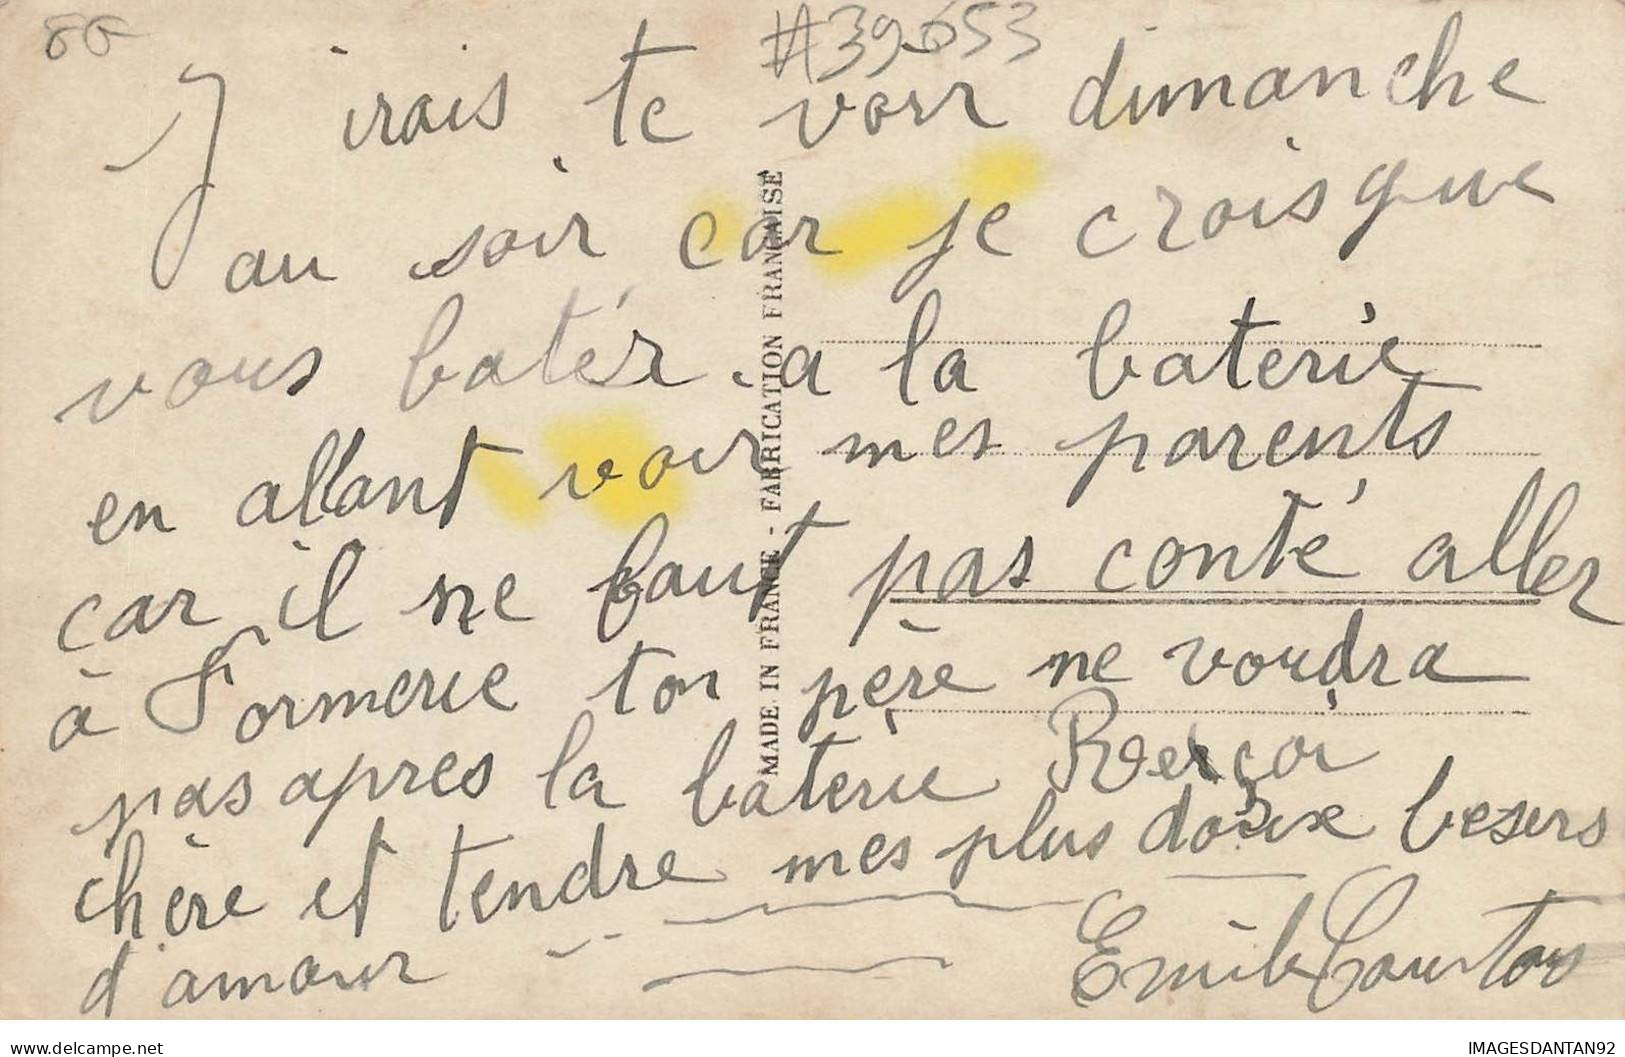 86
#39653
J irais te voir dimanche
au soir car je crois que
vous batér a la baterie
en allant voir mes parents
car il ne faut pas conté aller
à Formerie ton père ne voudra
pas apres la baterie Reçoi
chère et tendre mes plus doux besers
d'amour
Emile Courtoy
MADE IN FRANCE - FABRICATION FRANÇAISE
delcampe.net
IMAGESDANTAN92